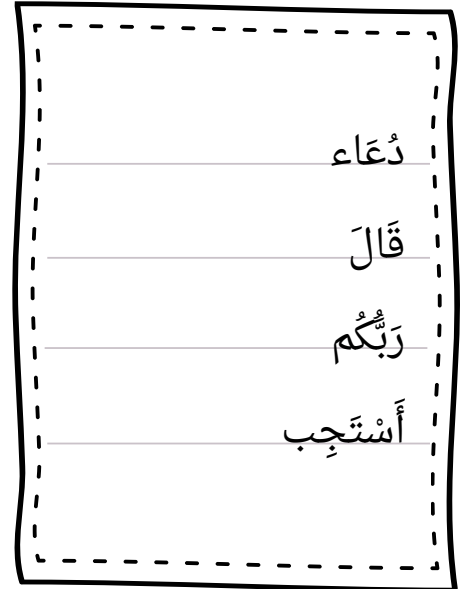 دُعَاء
قَالَ
رَبُّكُم
أَسْتَجِب